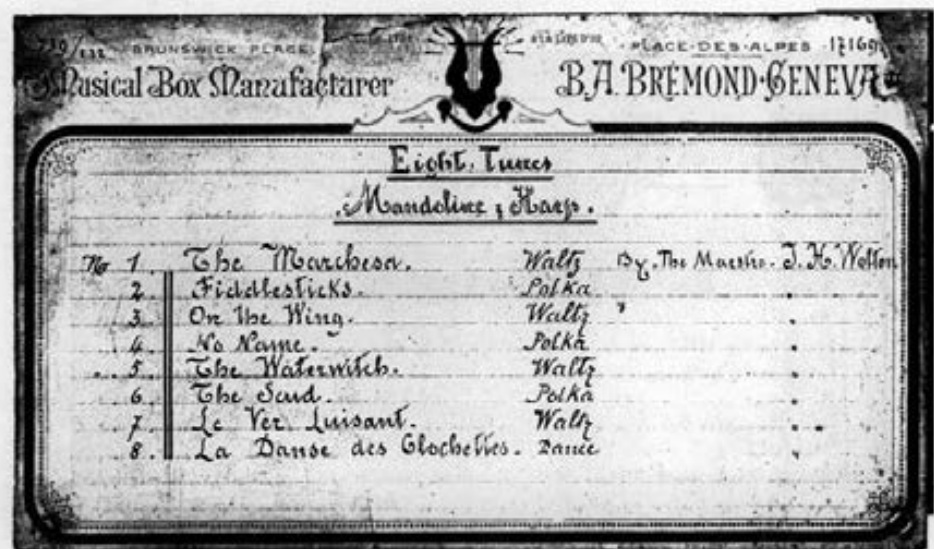 BRUNSWICK PLACE PLACE·DES·ALPES 17169
Musical Box Manufacturer B.A. BRÉMOND·GENEVA
Eight Tunes
Mandoline & Harp.
No 1. The Marchesa. Waltz By. The Maestro. J. H. Wolton
2 Fiddlesticks. Polka
3. On the Wing. Waltz "
4. No Name. Polka
5 The Waterwitch. Waltz
6 The Scud. Polka
7. Le Ver Luisant. Waltz
8. La Danse des Clochettes. Dance